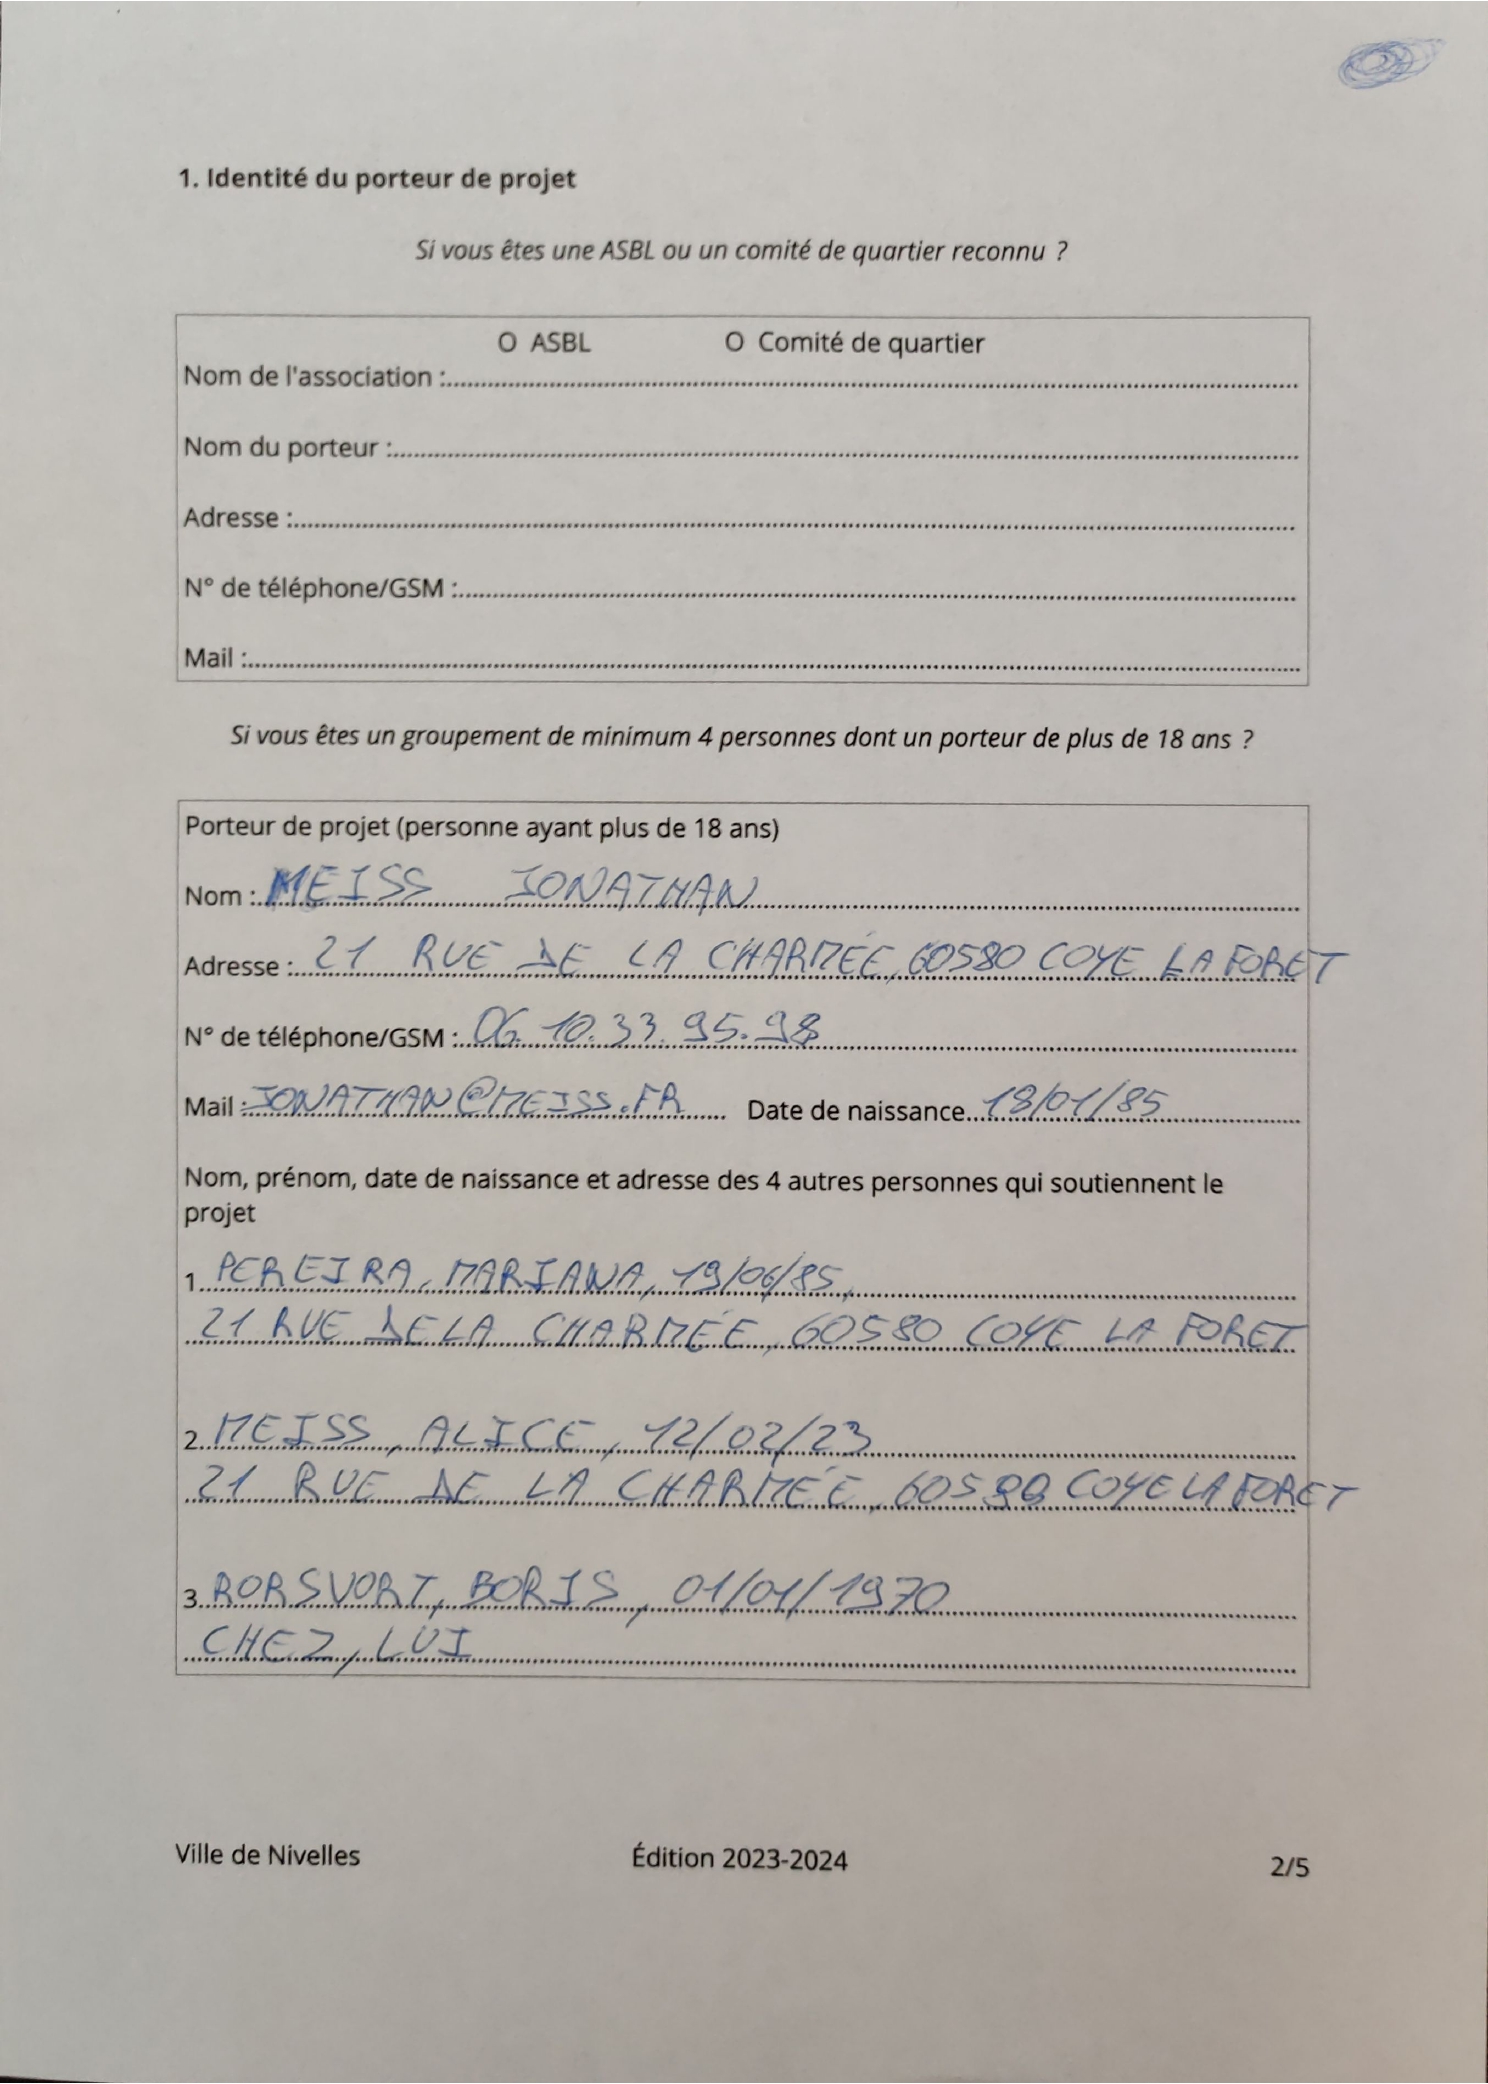 1. Identité du porteur de projet
Si vous êtes une ASBL ou un comité de quartier reconnu ?
O ASBL O Comité de quartier
Nom de l'association :
Nom du porteur :
Adresse :
N° de téléphone/GSM :
Mail :
Si vous êtes un groupement de minimum 4 personnes dont un porteur de plus de 18 ans ?
Porteur de projet (personne ayant plus de 18 ans)
Nom : MEISS JONATHAN
Adresse : 21 RUE DE LA CHARMÉE, 60580 COYE LA FORET
N° de téléphone/GSM : 06.10.33.95.98
Mail : JONATHAN@MEISS.FR Date de naissance 18/01/85
Nom, prénom, date de naissance et adresse des 4 autres personnes qui soutiennent le
projet
1. PEREIRA, MARIANA, 19/06/85,
21 RUE DE LA CHARMÉE, 60580 COYE LA FORET
2. MEISS, ALICE, 12/02/23
21 RUE DE LA CHARMÉE, 60580 COYE LA FORET
3. RORSVORT, BORIS, 01/01/1970
CHEZ, LUI
Ville de Nivelles Édition 2023-2024 2/5